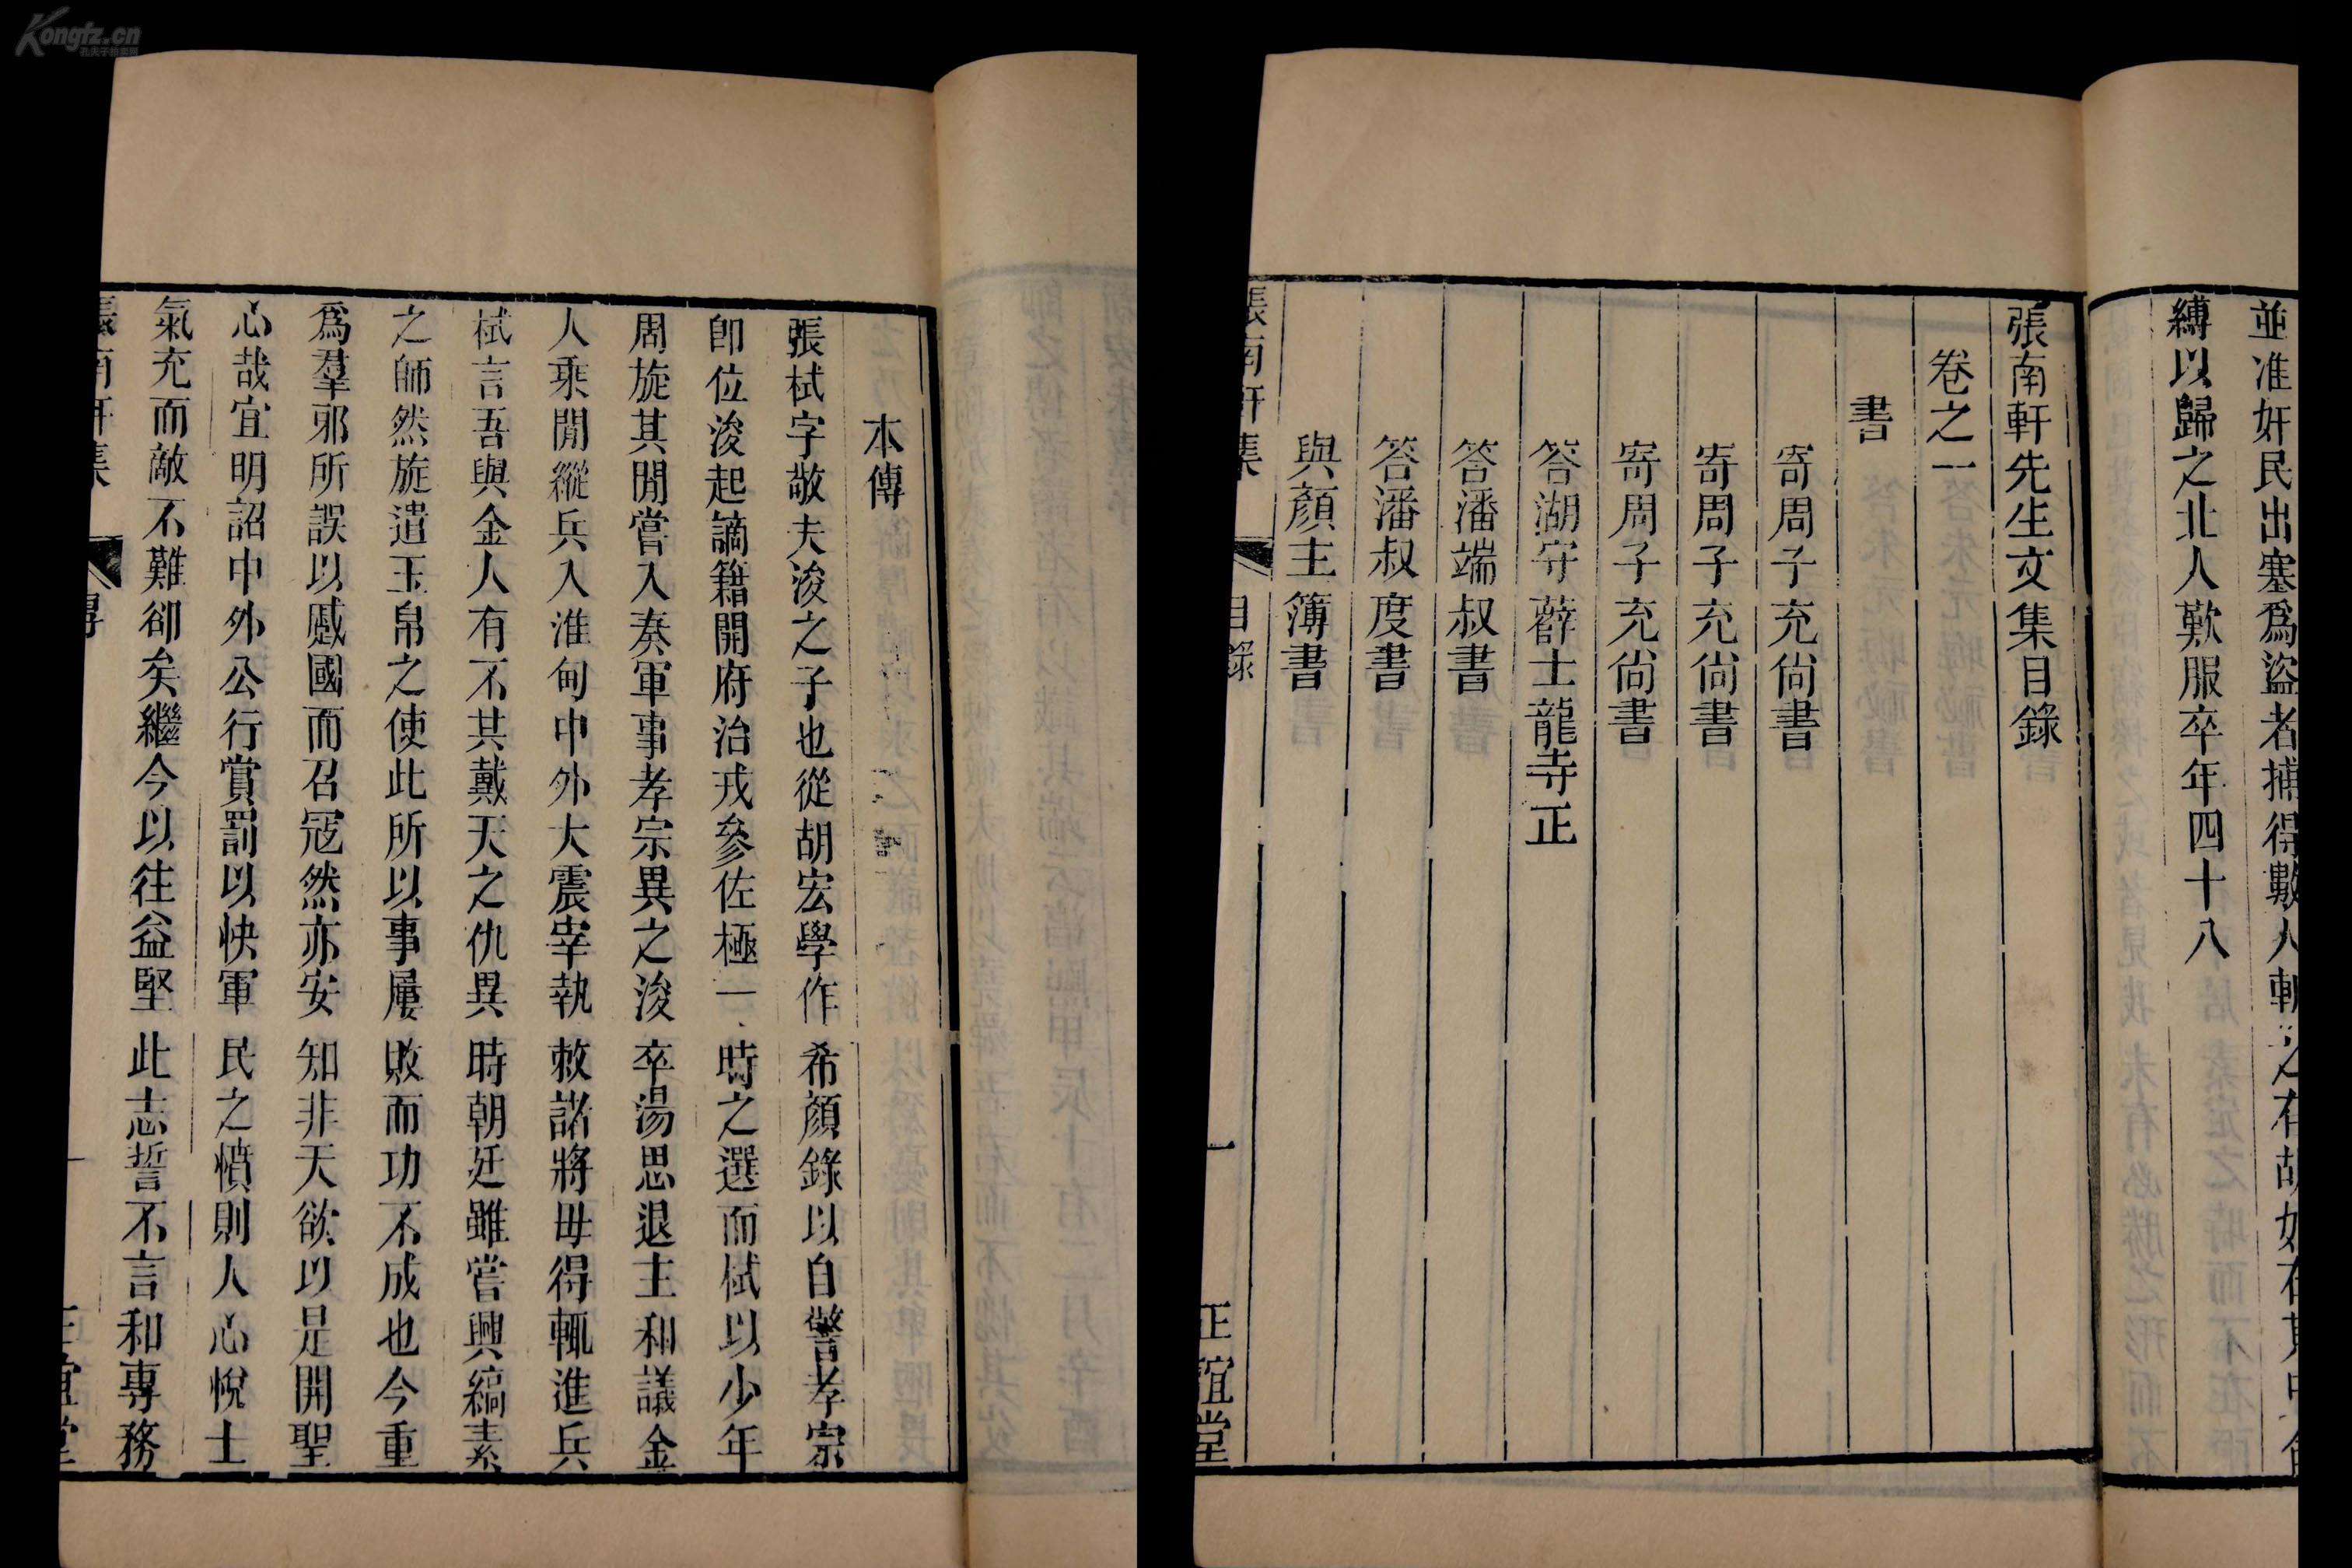 Kongfz.cn
本傳
張栻字敬夫浚之子也從胡宏學作希顔錄以自警孝宗
卽位浚起謫籍開府治戎參佐極一時之選而栻以少年
周旋其閒嘗入奏軍事孝宗異之浚卒湯思退主和議金
人乘閒縱兵入淮甸中外大震宰執敕諸將毋得輒進兵
栻言吾與金人有不其戴天之仇異時朝廷雖嘗興縞素
之師然旋遣玉帛之使此所以事屢敗而功不成也今重
爲羣邪所誤以蹙國而召冦然亦安知非天欲以是開聖
心哉宜明詔中外公行賞罰以快軍民之憤則人心悅士
氣充而敵不難卻矣繼今以往益堅此志誓不言和專務
張南軒集 傳 一 正誼堂
並准奸民出塞爲盜者捕得數人斬之有胡奴在其中
縛以歸之北人歎服卒年四十八
張南軒先生文集目錄
卷之一
書
寄周子充尙書
寄周子充尙書
寄周子充尙書
答湖守薛士龍寺正
答潘端叔書
答潘叔度書
與顔主簿書
張南軒集 目錄 一 正誼堂